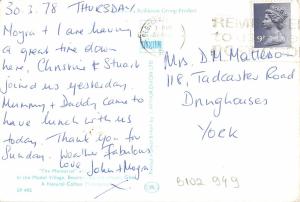 30.3.78 THURSDAY
Moyra + I are having
a great time down
here, Christine & Stuart
joined us yesterday.
Mummy + Daddy came to
have lunch with us
today. Thank you for
Sunday. Weather Fabulous
love John + Moyra.
X
Mrs. D M Matteson
118, Tadcaster Road
Dringhouses
York
B102 949
9P
REMEMBER
"The Memorial"
in the Model Village,
A Natural Colour